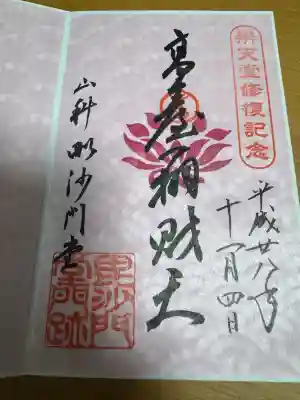 辨天堂修復記念
平成廿八年
十一月四日
高臺弁財天
山科毘沙門堂
毘沙門
堂門跡